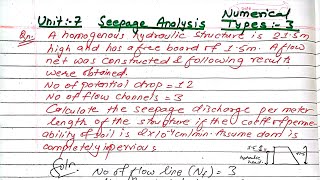 Unit:-7 Seepage Analysis Numerical
Types:- 3
Qn. A homogenous hydraulic structure is 21.5m
high and has a free board of 1.5m. A flow
net was constructed & following results
were obtained.
No of potential drop = 12
No of flow channels = 3
Calculate the seepage discharge per meter
length of the structure if the coeff of perme-
ability of soil is 2x10⁻⁴cm/min. Assume dam is
completely impervious
Soln
No of flow line (Nf) = 3